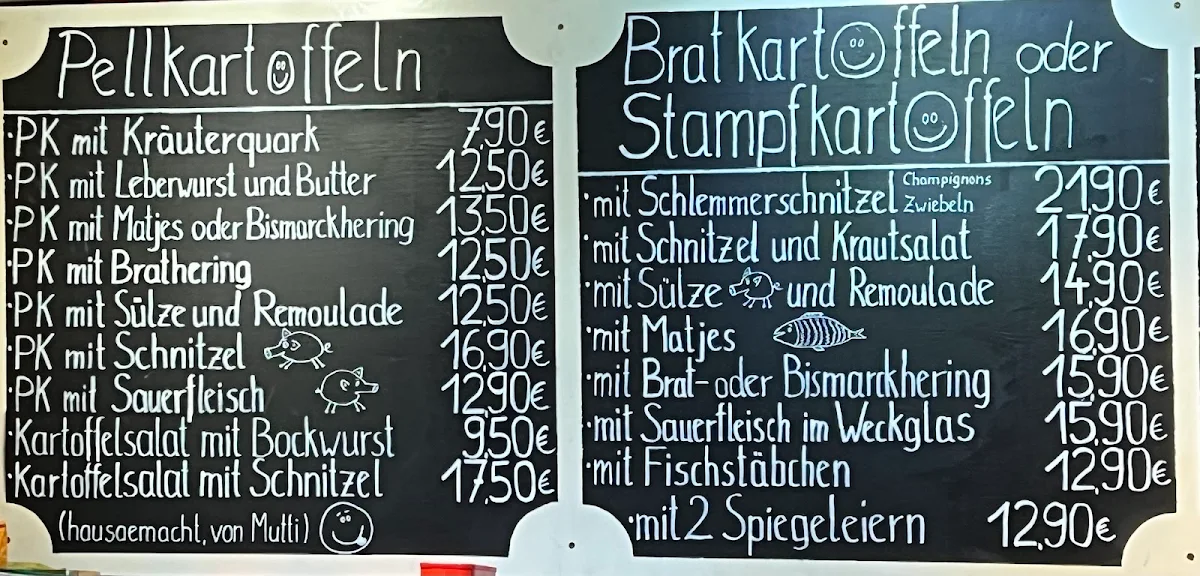 Pellkartoffeln
·PK mit Kräuterquark 7,90€
·PK mit Leberwurst und Butter 12,50€
·PK mit Matjes oder Bismarckhering 13,50€
·PK mit Brathering 12,50€
·PK mit Sülze und Remoulade 12,50€
·PK mit Schnitzel 16,90€
·PK mit Sauerfleisch 12,90€
·Kartoffelsalat mit Bockwurst 9,50€
·Kartoffelsalat mit Schnitzel 17,50€
(hausgemacht, von Mutti)
Bratkartoffeln oder
Stampfkartoffeln
·mit Schlemmerschnitzel Champignons Zwiebeln 21,90€
·mit Schnitzel und Krautsalat 17,90€
·mit Sülze und Remoulade 14,90€
·mit Matjes 16,90€
·mit Brat- oder Bismarckhering 15,90€
·mit Sauerfleisch im Weckglas 15,90€
·mit Fischstäbchen 12,90€
·mit 2 Spiegeleiern 12,90€